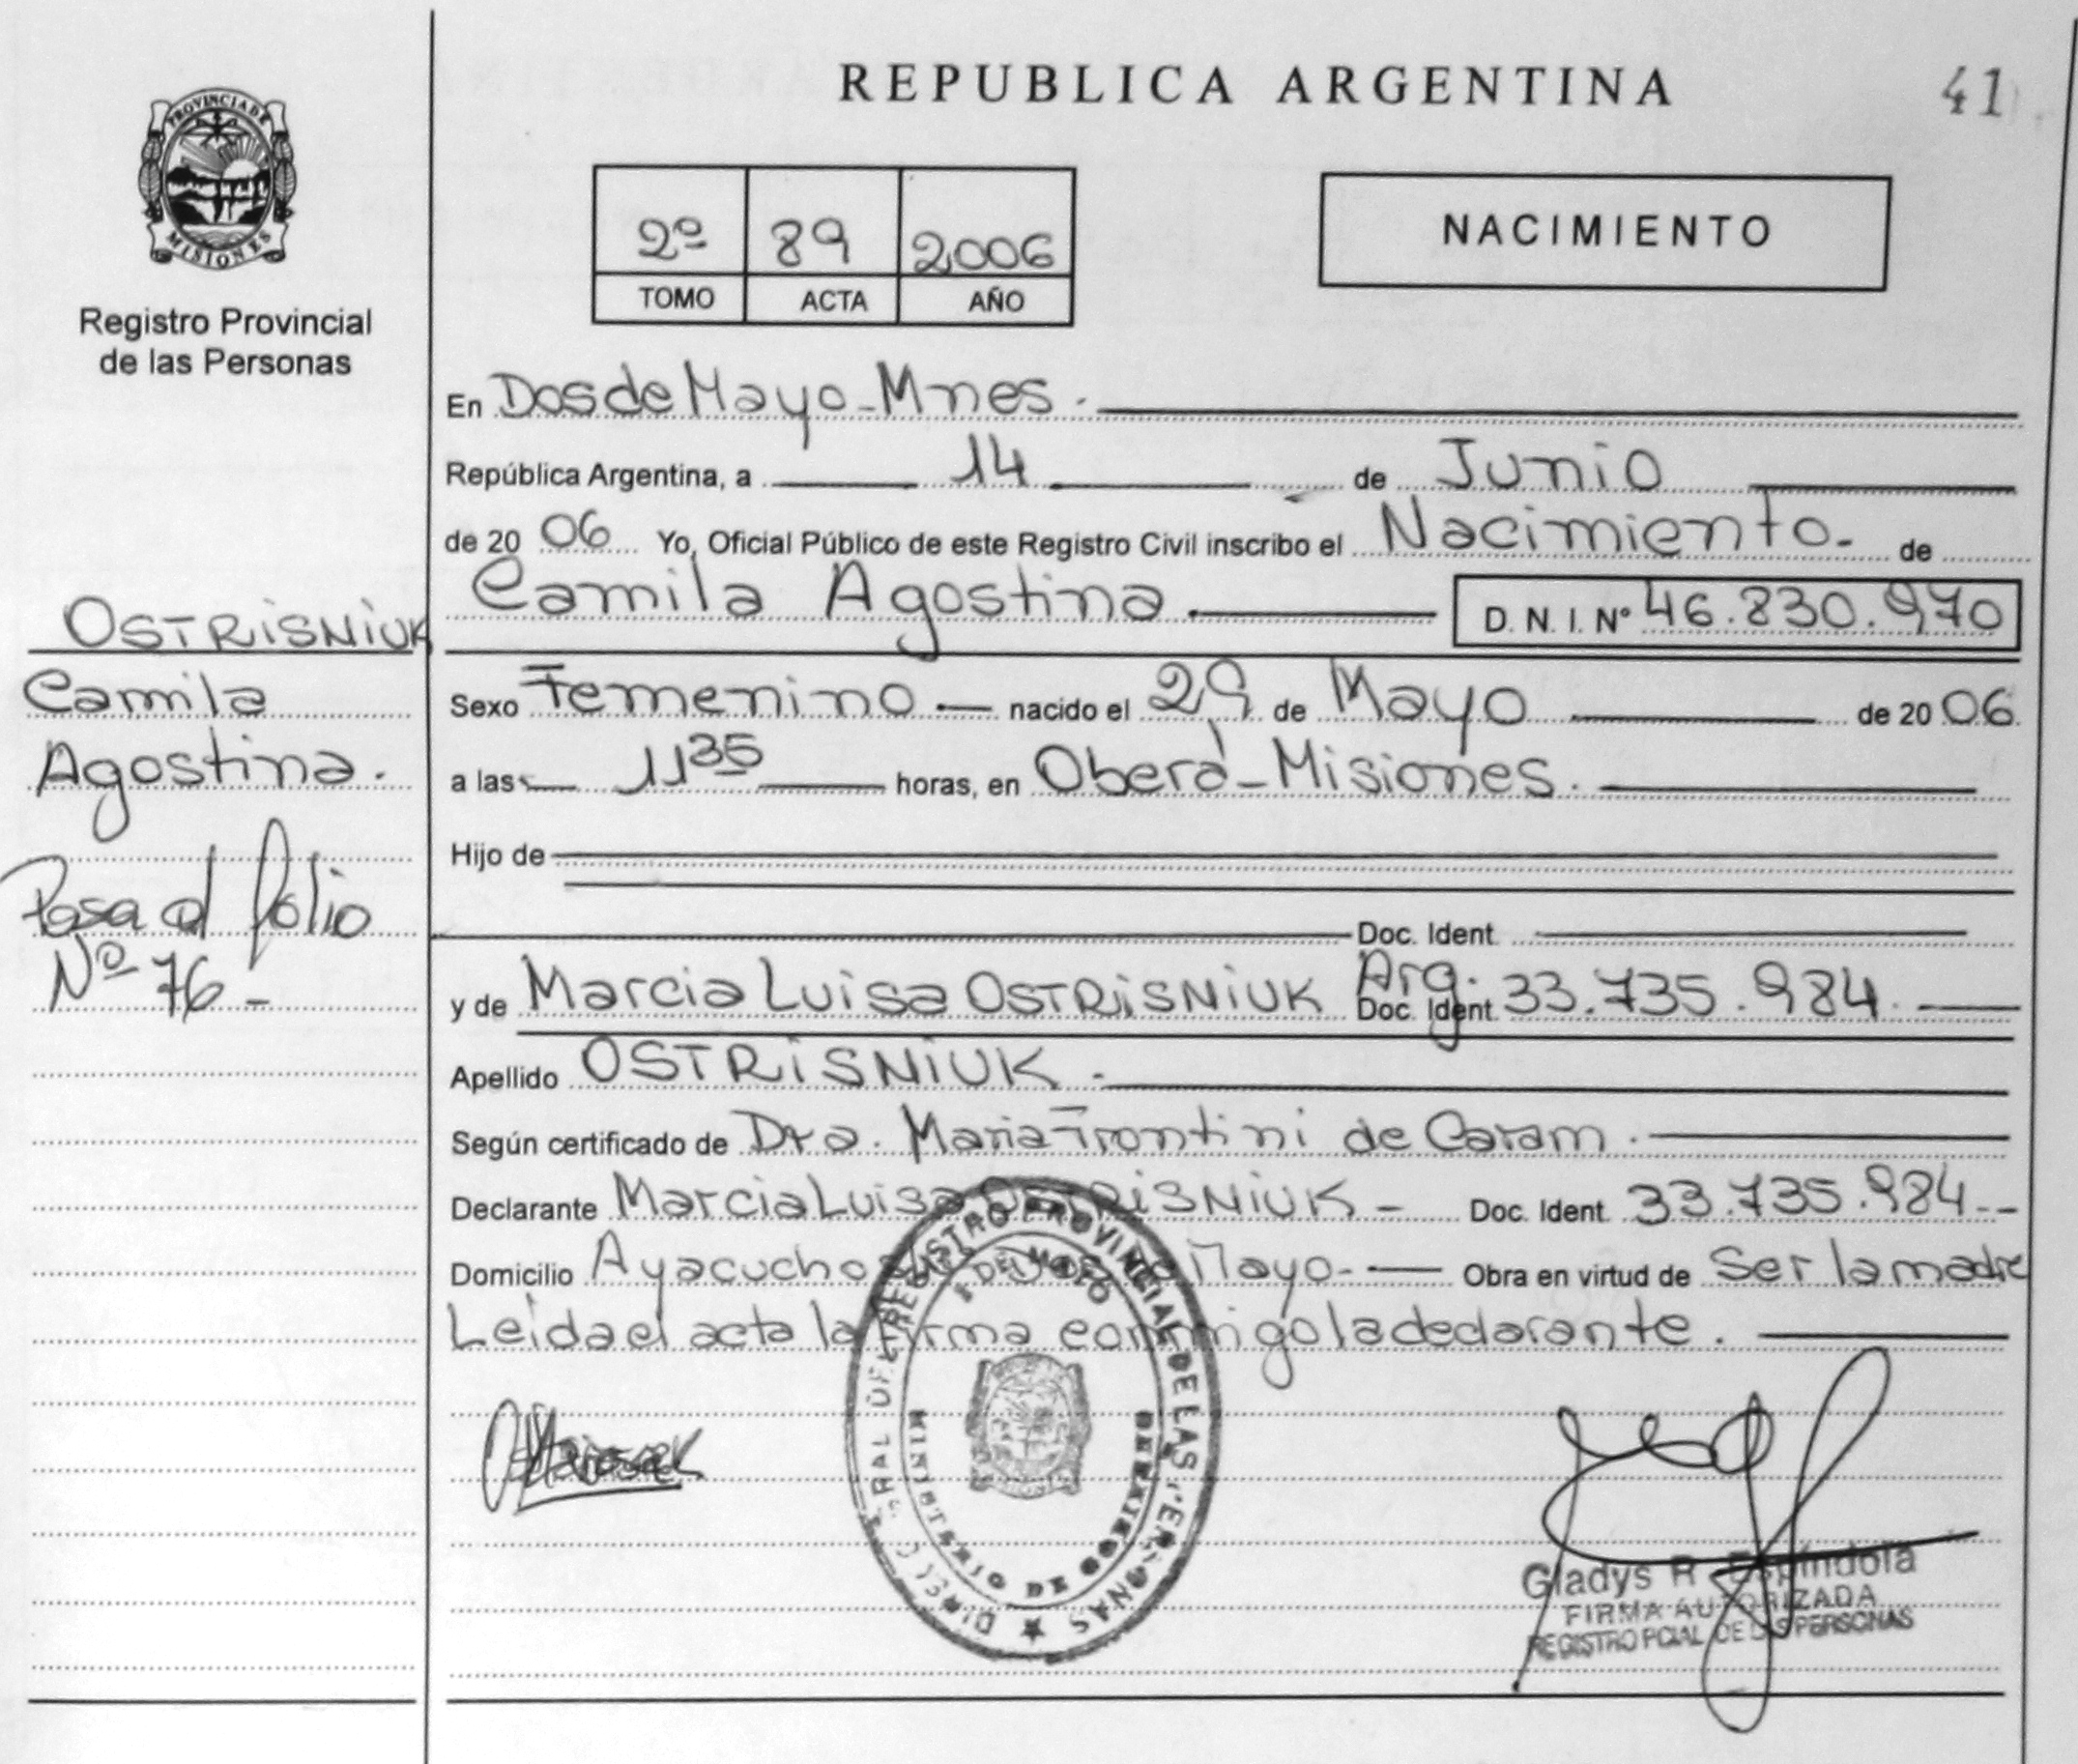 REPUBLICA ARGENTINA
41
PROVINCIA DE
MISIONES
Registro Provincial
de las Personas
2º 89 2006
TOMO ACTA AÑO
NACIMIENTO
En Dos de Mayo - Mnes.
República Argentina, a 14 de Junio
de 20 06 Yo, Oficial Público de este Registro Civil inscribo el Nacimiento. de
Camila Agostina. D. N. I. Nº 46.830.970
Sexo Femenino nacido el 29 de Mayo de 20 06
a las 11 35 horas, en Oberá - Misiones.
Hijo de
Doc. Ident
y de Marcia Luisa OSTRISNIUK Arg. Doc. Ident 33.735.984.
Apellido OSTRISNIUK.
Según certificado de Dra. Maria Frontini de Caram.
Declarante Marcia Luisa OSTRISNIUK - Doc. Ident. 33.735.984--
Domicilio Ayacucho Mayo- Obra en virtud de Ser la madre
Leida el acta la firma conmigo la declarante.
OSTRISNIUK
Camila
Agostina.
Pasa al folio
Nº 76-
REGISTRO PROVINCIAL DE LAS PERSONAS
MINISTERIO DE GOBIERNO
Gladys R Espíndola
FIRMA AUTORIZADA
REGISTRO PCIAL DE LAS PERSONAS